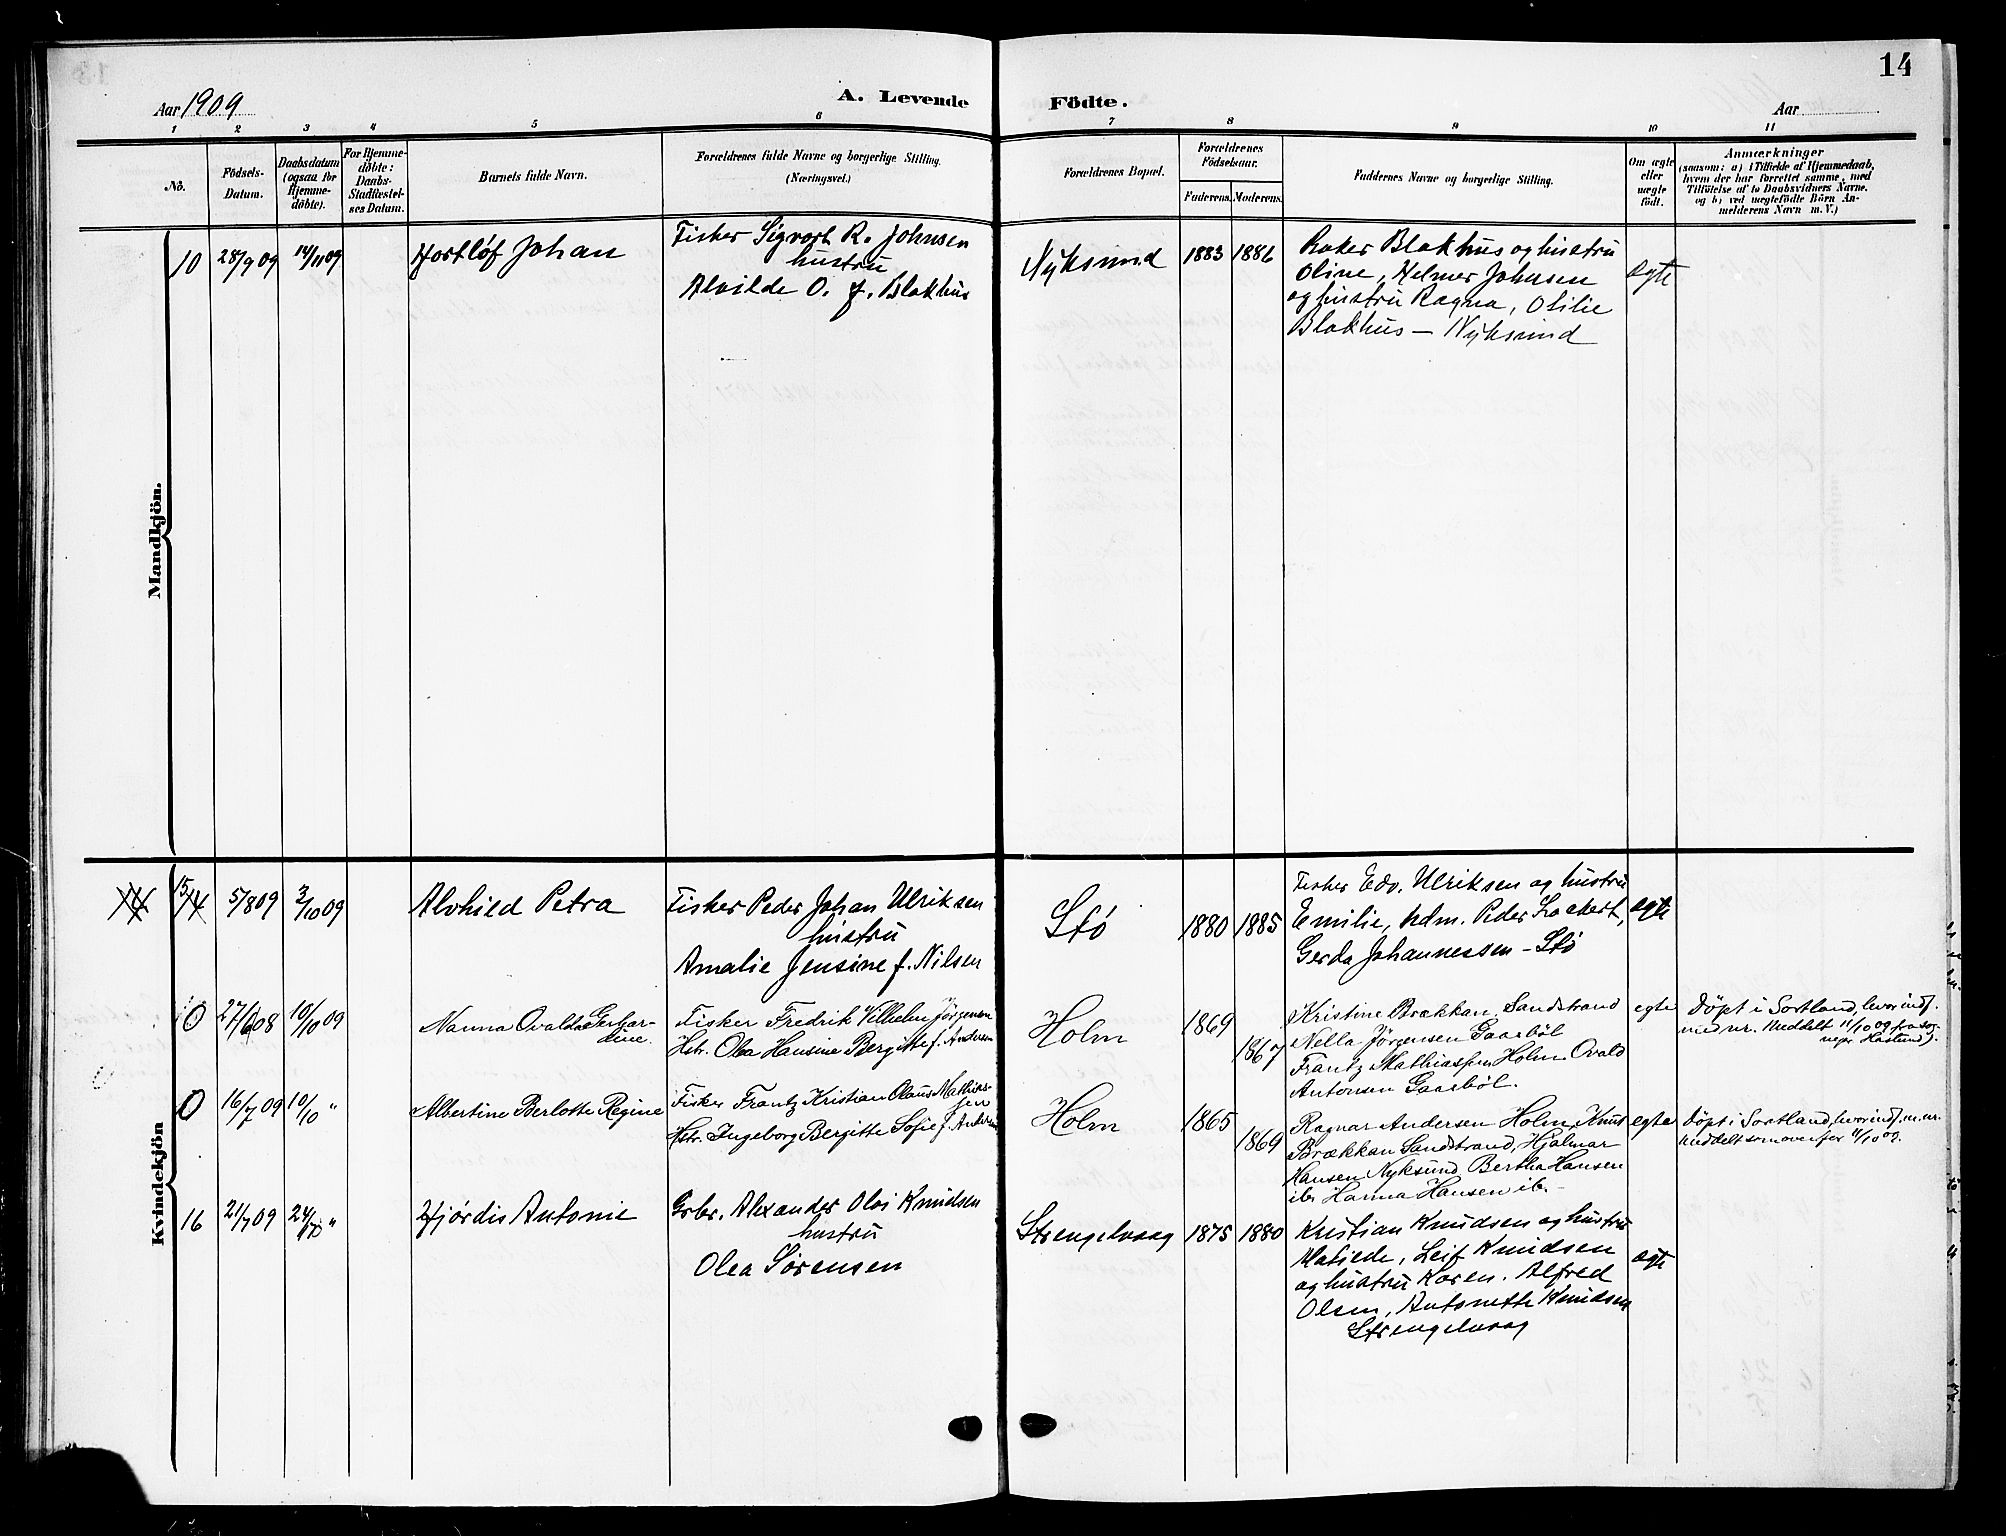 14
Aar 1909
A. Levende Födte.
Aar
1 2 3 4 5 6 7 8 9 10 11
No.
Födsels-
Datum.
Daabsdatum
(ogsaa for
Hjemme-
döbte).
For Hjemme-
döbte:
Daabs-
Stadfæstel-
ses Datum.
Barnets fulde Navn.
Forældrenes fulde Navne og borgerlige Stilling.
(Næringsvei.)
Forældrenes Bopæl.
Forældrenes
Födselsaar.
Faderens. Moderens.
Faddernes Navne og borgerlige Stilling.
Om ægte
eller
uægte
födt.
Anmærkninger
(saasom: a) i Tilfælde af Hjemmedaab,
hvem der har forrettet samme, med
Tilföielse af to Daabsvidners Navne,
og b) ved uægtefödte Börn An-
melderens Navn m. V.)
Mandkjön.
10 28/9 09 14/11 09
Hartløf Johan
Fisker Sigvart R. Johnsen
hustru
Alvilde O. f. Blakhus
Nyksund
1883 1886
Baker Blakhus og hustru
Oline, Helmer Johnsen
og hustru Ragna, Otilie
Blakhus — Nyksund
egte
Kvindekjön
14 15/14 5/8 09 3/10 09
Alvhild Petra
Fisker Peder Johan Ulriksen
hustru
Amalie Jensine f. Nilsen
Stø
1880 1885
Fisker Edv. Ulriksen og hustru
Emilie, hdm. Peder Lockert,
Gerda Johannessen – Stø
egte
0 27/6 08 10/10 09
Nanna Ovalda Gerhar-
dine
Fisker Fredrik Vilhelm Jørgensen
Hstr. Olea Hansine Bergitte f. Andersen
Holm
1869
1867
Kristine Brækkan Sandstrand
Nella Jørgensen Gaasbøl
Frantz Mathiassen Holm Ovald
Antonsen Gaasbøl.
egte
Døpt i Sortland, hvor indf.
med nr. Meddelt 11/10 09 fra sog-
nepr Haslund).
0 16/7 09 10/10 "
Albertine Berlotte Regine
Fisker Frantz Kristian Olaus Mathias-
sen
Hstr. Ingeborg Bergitte Sofie f. Andersen
Holm
1865
1869
Ragnar Andersen Holm, Knut
Brækkan Sandstrand, Hjalmar
Hansen Nyksund Bertha Hansen
ib. Hanna Hansen ib.
egte
Døpt i Sortland, hvor indf. m. nr.
Meddelt som ovenfor 11/10 09.
16 21/7 09 24/10 "
Hjørdis Antonie
Grbr. Alexander Olai Knudsen
hustru
Olea Sørensen
Strengelvaag
1875 1880
Kristian Knudsen og hustru
Matilde, Leif Knudsen
og hustru Karen. Alfred
Olsen, Antonette Knudsen
Strengelvaag
egte